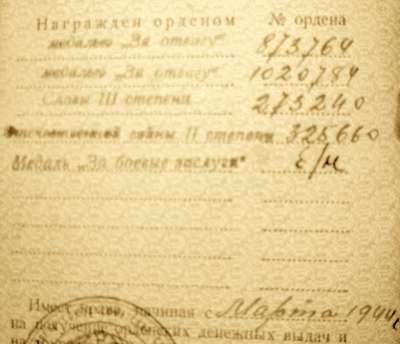 Награжден орденом № ордена
медалью „За отвагу" 873764
медалью „За отвагу" 1020784
Славы III степени 275240
Отечественной войны II степени 325660
Медаль „За боевые заслуги" б/н
Имеет право, начиная с Марта 1944 г.
на получение орденских денежных выдач и